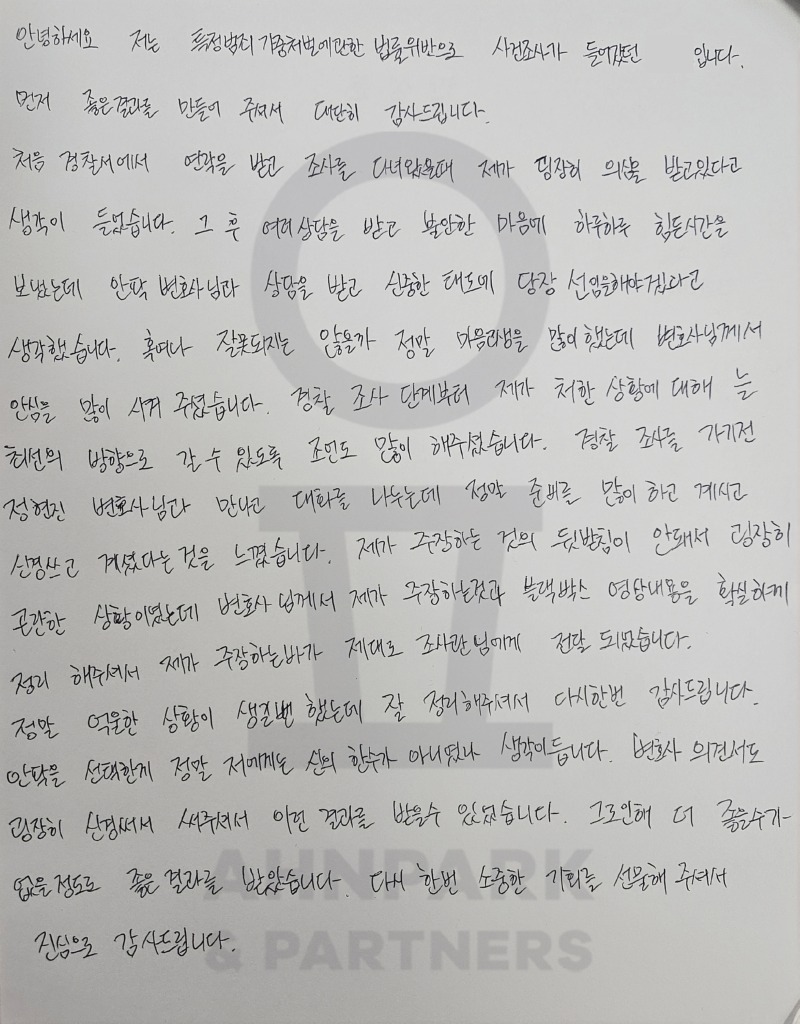 안녕하세요 저는 특정범죄 가중처벌에관한 법률위반으로 사건조사가 들어갔던 입니다.
먼저 좋은결과를 만들어 주셔서 대단히 감사드립니다.
처음 경찰서에서 연락을 받고 조사를 다녀왔을때 제가 굉장히 의심을 받고있다고
생각이 들었습니다. 그 후 여러상담을 받고 불안한 마음에 하루하루 힘든시간을
보냈는데 안팍 변호사님과 상담을 받고 신중한 태도에 당장 선임을해야겠다고
생각했습니다. 혹여나 잘못되지는 않을까 정말 마음고생을 많이했는데 변호사님께서
안심을 많이 시켜 주셨습니다. 경찰 조사 단계부터 제가 처한 상황에 대해 늘
최선의 방향으로 갈 수 있도록 조언도 많이 해주셨습니다. 경찰 조사를 가기전
정현진 변호사님과 만나고 대화를 나누는데 정말 준비를 많이 하고 계시고
신경쓰고 계셨다는것을 느꼈습니다. 제가 주장하는 것의 뒷받침이 안돼서 굉장히
곤란한 상황이였는데 변호사님께서 제가 주장하는것과 블랙박스 영상내용을 확실하게
정리 해주셔서 제가 주장하는바가 제대로 조사관님에게 전달 되었습니다.
정말 억울한 상황이 생길뻔 했는데 잘 정리해주셔서 다시한번 감사드립니다.
안팍을 선택한게 정말 저에게는 신의 한수가 아니였나 생각이듭니다. 변호사 의견서도
굉장히 신경써서 써주셔서 이런 결과를 받을수 있었습니다. 그로인해 더 좋을수가
없을정도로 좋은 결과를 받았습니다. 다시 한번 소중한 기회를 선물해 주셔서
진심으로 감사드립니다.
AHNPARK
& PARTNERS